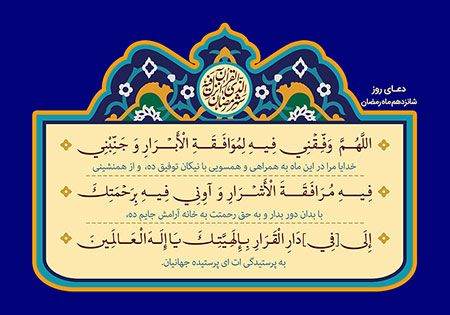 دعـای روز
شانزدهم ماه رمضان
شهر رمضان الذی انزل فیه القرآن
اللَّهُمَّ وَفِّقْنِي فِيهِ لِمُوَافَقَةِ الْأَبْرَارِ وَ جَنِّبْنِي
خدایا مرا در این ماه به همراهی و همسویی با نیکان توفیق ده، و از همنشینی
فِيهِ مُرَافَقَةَ الْأَشْرَارِ وَ آوِنِي فِيهِ بِرَحْمَتِكَ
با بدان دور بدار و به حق رحمتت به خانه آرامش جایم ده،
إِلَى [فِي] دَارِ الْقَرَارِ بِإِلَهِيَّتِكَ يَا إِلَهَ الْعَالَمِينَ
به پرستیدگی ات ای پرستیده جهانیان.